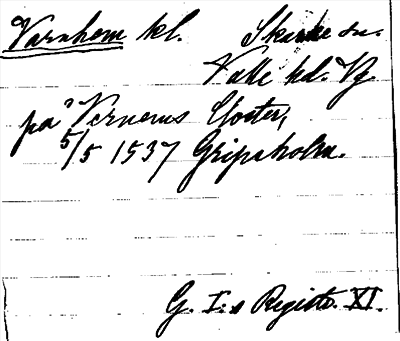 Varnhem kl. Skarke sn.
Valle hd. Vg.
på Vernems Closter,
5/5 1537 Gripsholm.
G. I:s Registr. XI.